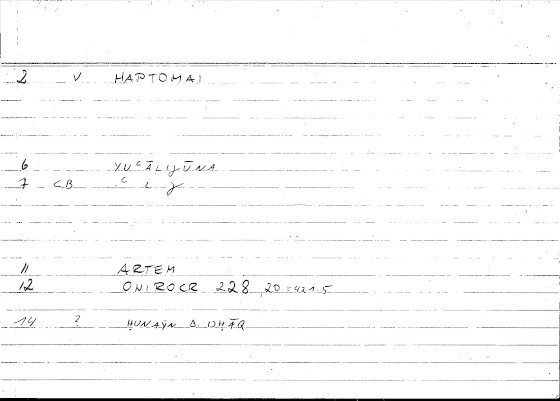 2 V HAPTOMAI
6 YUʿĀLIJŪNA
7 CB ʿ L J
11 ARTEM
12 ONIROCR 228, 20 = 421.5
14 ? ḤUNAYN B. ISḤĀQ